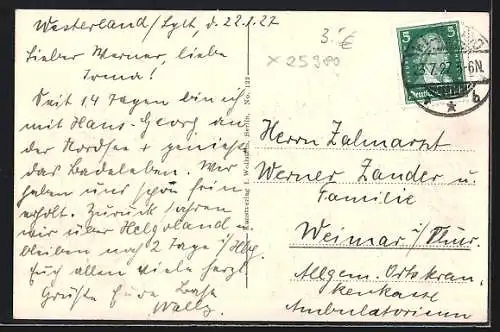 Westerland/Sylt, d. 22.7.27
Lieber Werner, liebe
Irma!
Seit 14 Tagen bin ich
mit Hans-Georg an
der Nordsee + geniesse
das Badeleben. Wir
haben uns schon fein
erholt. Zurück fahren
wir über Helgoland u.
bleiben noch 2 Tage i/Hbg.
Euch allen viele herzl.
Grüsse Eure Base
Wally.
3.- €
x 25380
Kunstverlag J. Wollstein, Berlin. No. 122
5 5
Deutsches
23.7.27. 5-6N.
* b
Herrn Zahnarzt
Werner Zander u.
Familie
Weimar i/Thür.
Allgem. Ortskran-
kenkasse
Ambulatorium